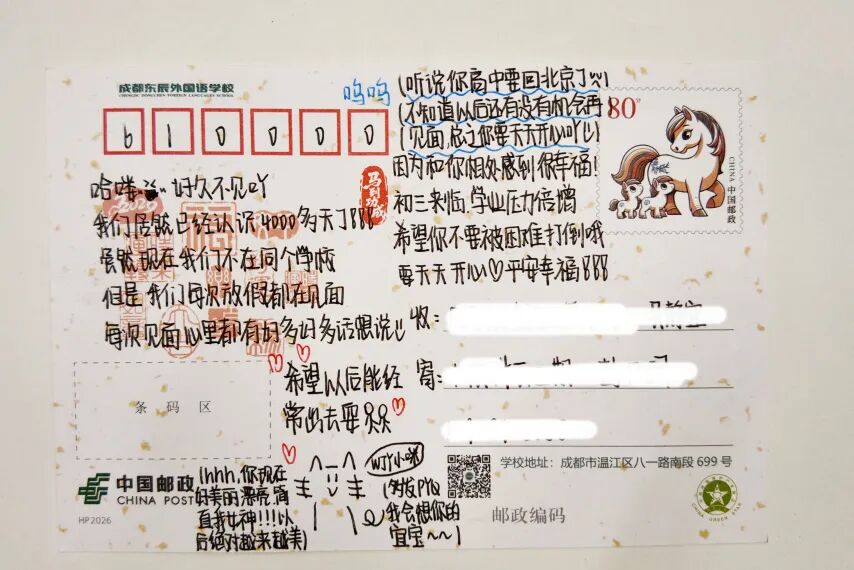 成都东辰外国语学校
CHENGDU DONGCHEN FOREIGN LANGUAGES SCHOOL
610000
哈喽 好久不见吖
我们居然已经认识4000多天了!!!
虽然现在我们不在同个学校
但是我们每次放假都在见面
每次见面心里都有好多好多话想说
呜呜
(听说你高中要回北京了
(不知道以后还有没有机会再
(见面,总之你要天天开心吖
因为和你相处感到很幸福!
初三来临,学业压力倍增
希望你不要被困难打倒哦
要天天开心♡平安幸福!!!
马到功成
80分
CHINA 中国邮政
收:
寄:
条码区
希望以后能经
常出去耍
中国邮政
CHINA POST
HP2026
(hhh,你现在
好美丽漂亮,简
直我女神!!!以
后绝对越来越美)
WJY小咪
(多发PYQ
我会想你的
宜宝~~)
学校地址:成都市温江区八一路南段 699 号
邮政编码
CHINA GREEN STAR